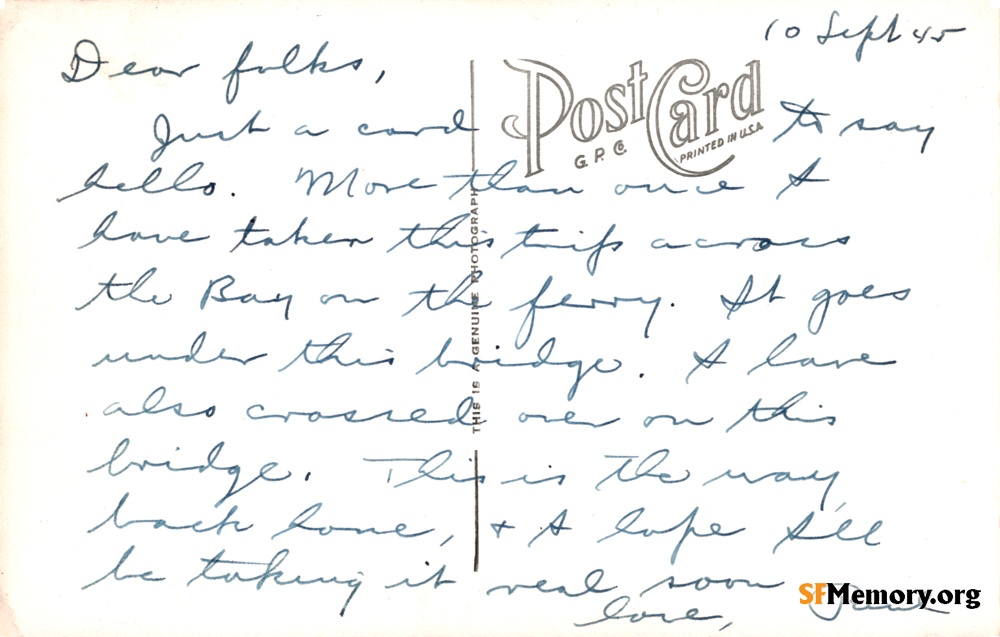 10 Sept 45
Dear folks,
POST CARD
G. P. Co.
PRINTED IN U.S.A.
THIS IS A GENUINE PHOTOGRAPH
Just a card to say
hello. More than once I
have taken this trip across
the Bay on the ferry. It goes
under this bridge. I have
also crossed over on this
bridge. This is the way
back home, & I hope I'll
be taking it real soon
love,
SFMemory.org